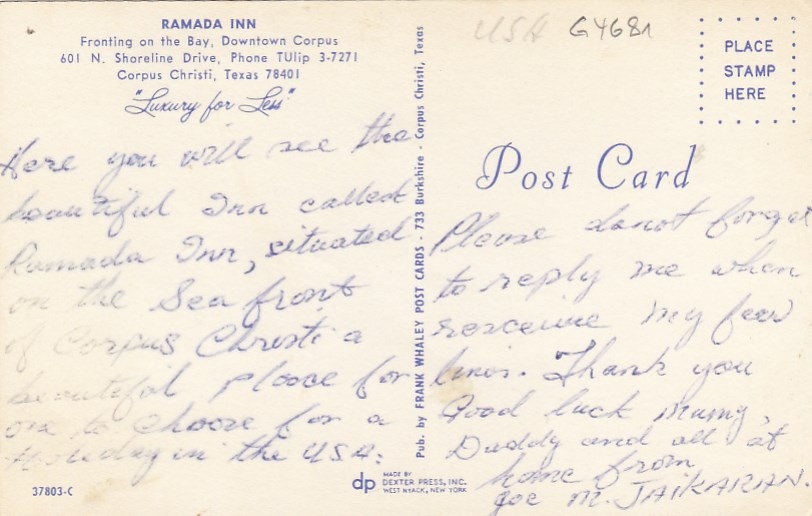 RAMADA INN
Fronting on the Bay, Downtown Corpus
601 N. Shoreline Drive, Phone TUlip 3-7271
Corpus Christi, Texas 78401
"Luxury for Less"
Here you will see the
beautiful Inn called
Ramada Inn, situated
on the Sea front
of Corpus Christi a
beautiful plooce for
one to choose for a
Holiday in the USA.
37803-C
Pub. by FRANK WHALEY POST CARDS - 733 Burkshire - Corpus Christi, Texas
dp MADE BY
DEXTER PRESS, INC.
WEST NYACK, NEW YORK
USA G4681
PLACE
STAMP
HERE
Post Card
Please donot forget
to reply me when
resceiuve my few
lines. Thank you
Good luck mumy,
Daddy and all at
home from
Joe M. JAIKARAN.